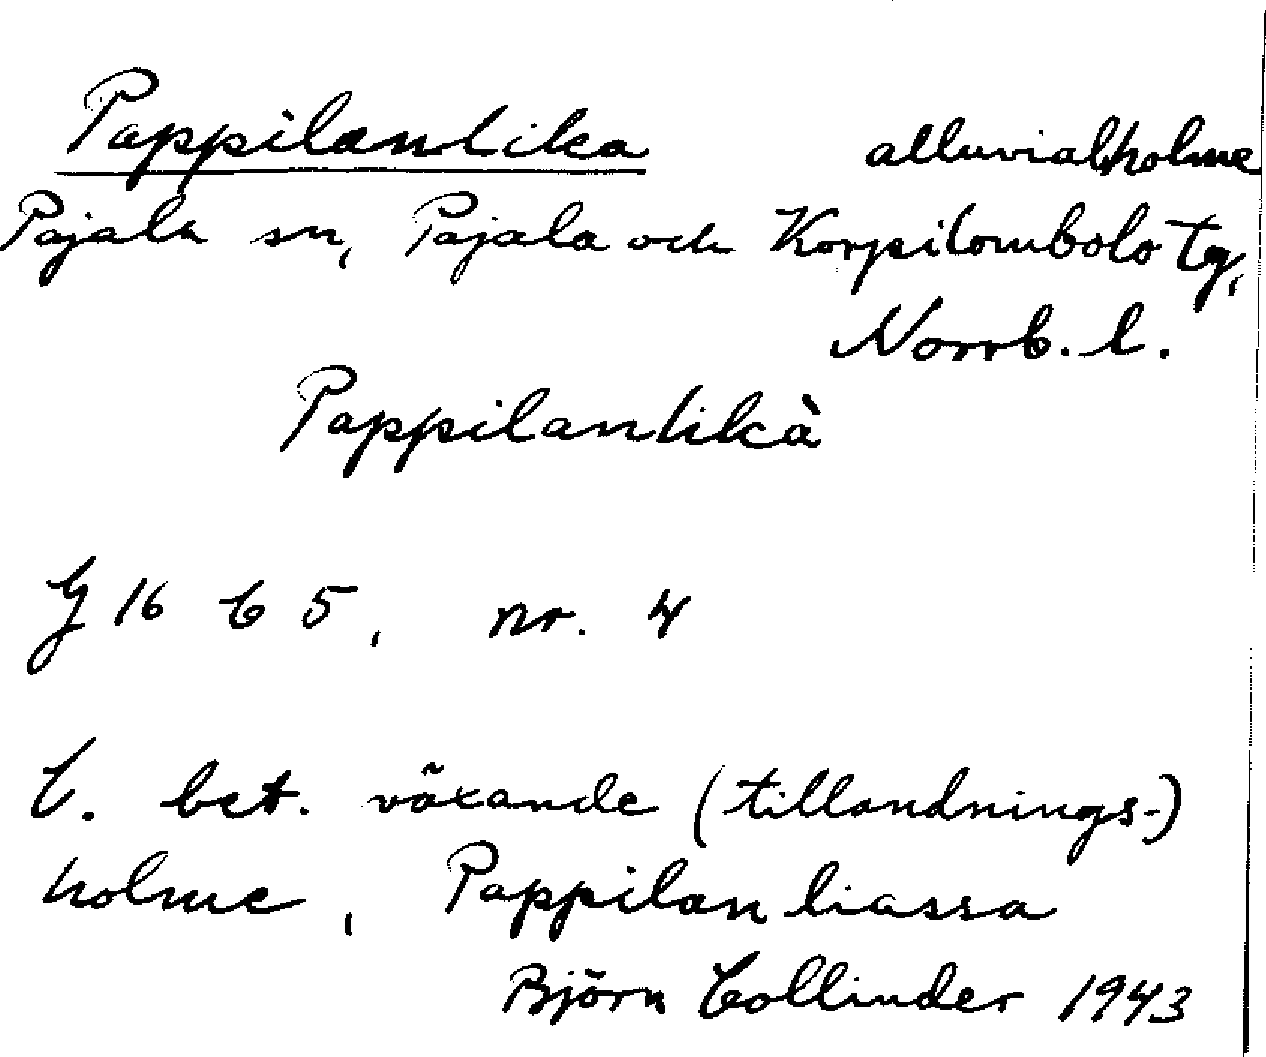 Pappilanlika alluvialholme
Pajala sn, Pajala och Korpilombolo tg,
Norrb. l.
Pappilanlikà
G 16 C 5, nr. 4
C. bet. växande (tillandnings-)
holme, Pappilan liassa
Björn Collinder 1943